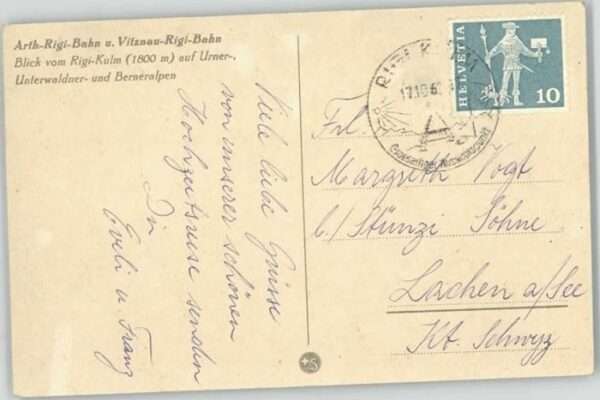 Arth-Rigi-Bahn u. Vitznau-Rigi-Bahn
Blick vom Rigi-Kulm (1800 m) auf Urner-,
Unterwaldner- und Berneralpen
Viele liebe Grüsse
von unserer schönen
Hochzeitsreise senden
Dir
Eveli u. Franz
RIGI KULM
17.10.6
HELVETIA
10
Frl.
Margreth Vogt
b/ Stünzi Söhne
Lachen a/See
Kt. Schwyz